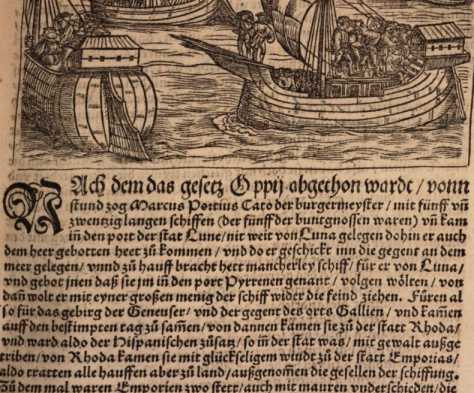 NAch dem das gesetz Oppij abgethon wardt / vonn
stund zog Marcus Portius Cato der burgermeyster / mit fünff vñ
zwentzig langen schiffen (der fünff der buntgnossen waren) vñ kam
in den port der stat Lune / nit weit von Luna gelegen dohin er auch
dem heer gebotten hett zů kommen / vnd do er geschickt inn die gegent an dem
meer gelegen / vnnd zů hauff bracht hett mancherley schiff / für er von Luna /
vnd gebot jnen daß sie jm in den port Pyrrenen genant / volgen wölten / von
dañ wolt er mit eyner großen menig der schiff wider die feind ziehen. Füren al
so für das gebirg der Genueser / vnd der gegent des orts Gallien / vnd kamẽ
auff den bestimpten tag zů samẽ / von dannen kamen sie zů der statt Rhoda /
vnd ward aldo der Hispanischen zůsatz / so in der stat was / mit gewalt außge
triben / von Rhoda kamen sie mit glückseligem windt zů der statt Emporias /
aldo tratten alle hauffen aber zů land / außgenomẽ die gesellen der schiffung.
Zů dem mal waren Emporien zwo stett / auch mit mauren vnderschieden / die